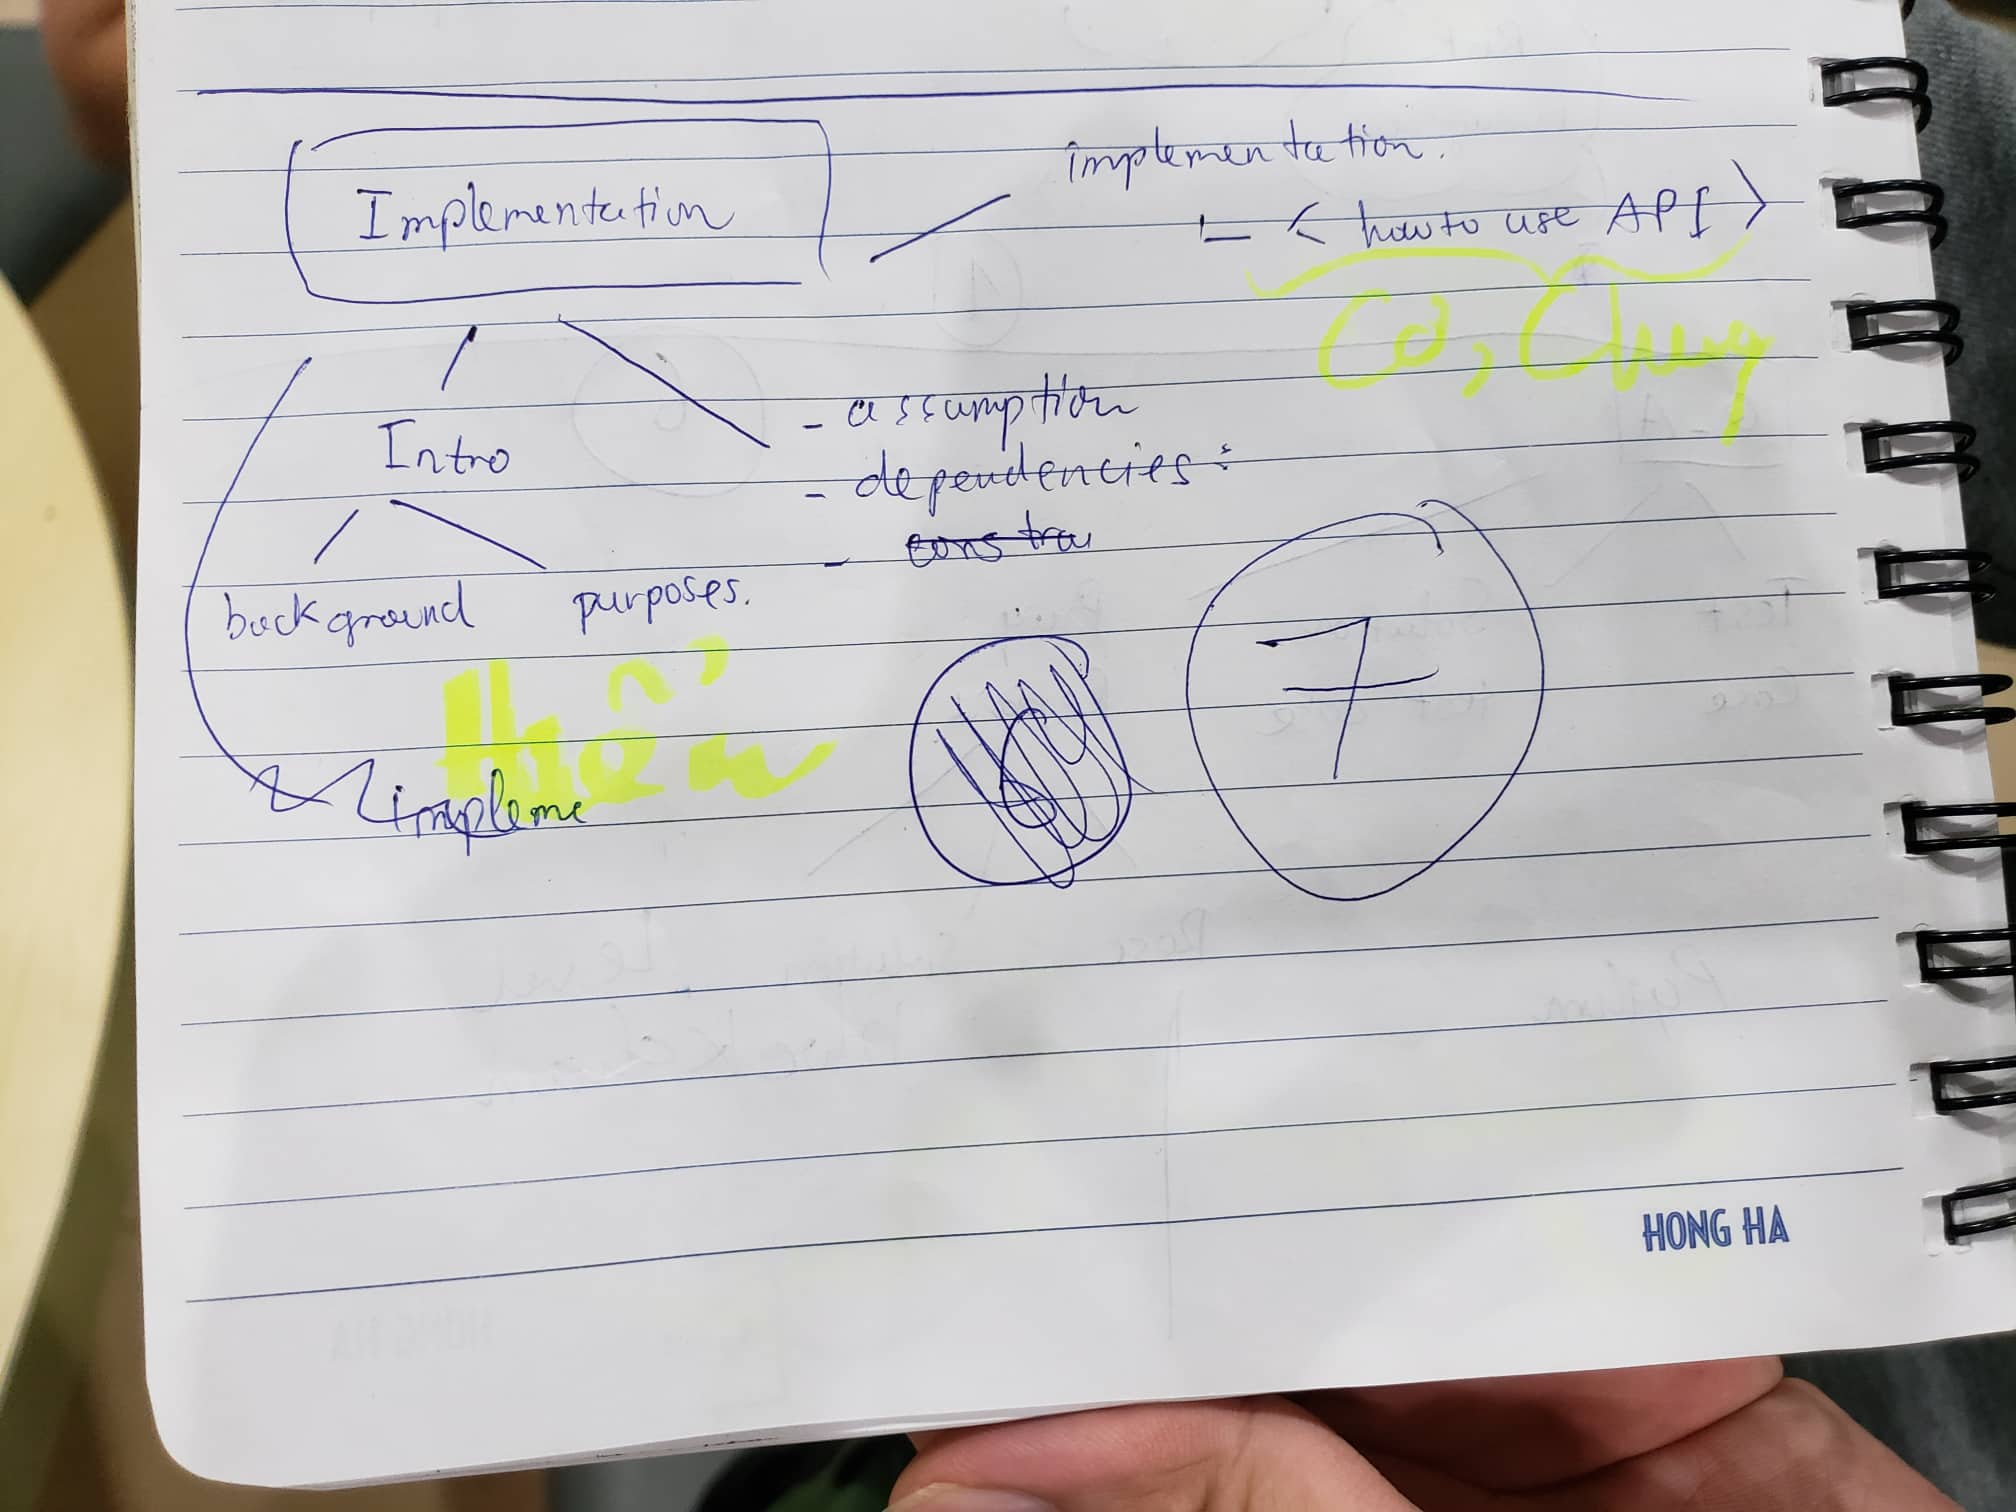 implementation.
Implementation
< how to use API >
Cơ, Chung
- assumption
Intro
- dependencies:
- cons trai
background
purposes.
7
Hiển
impleme
HONG HA